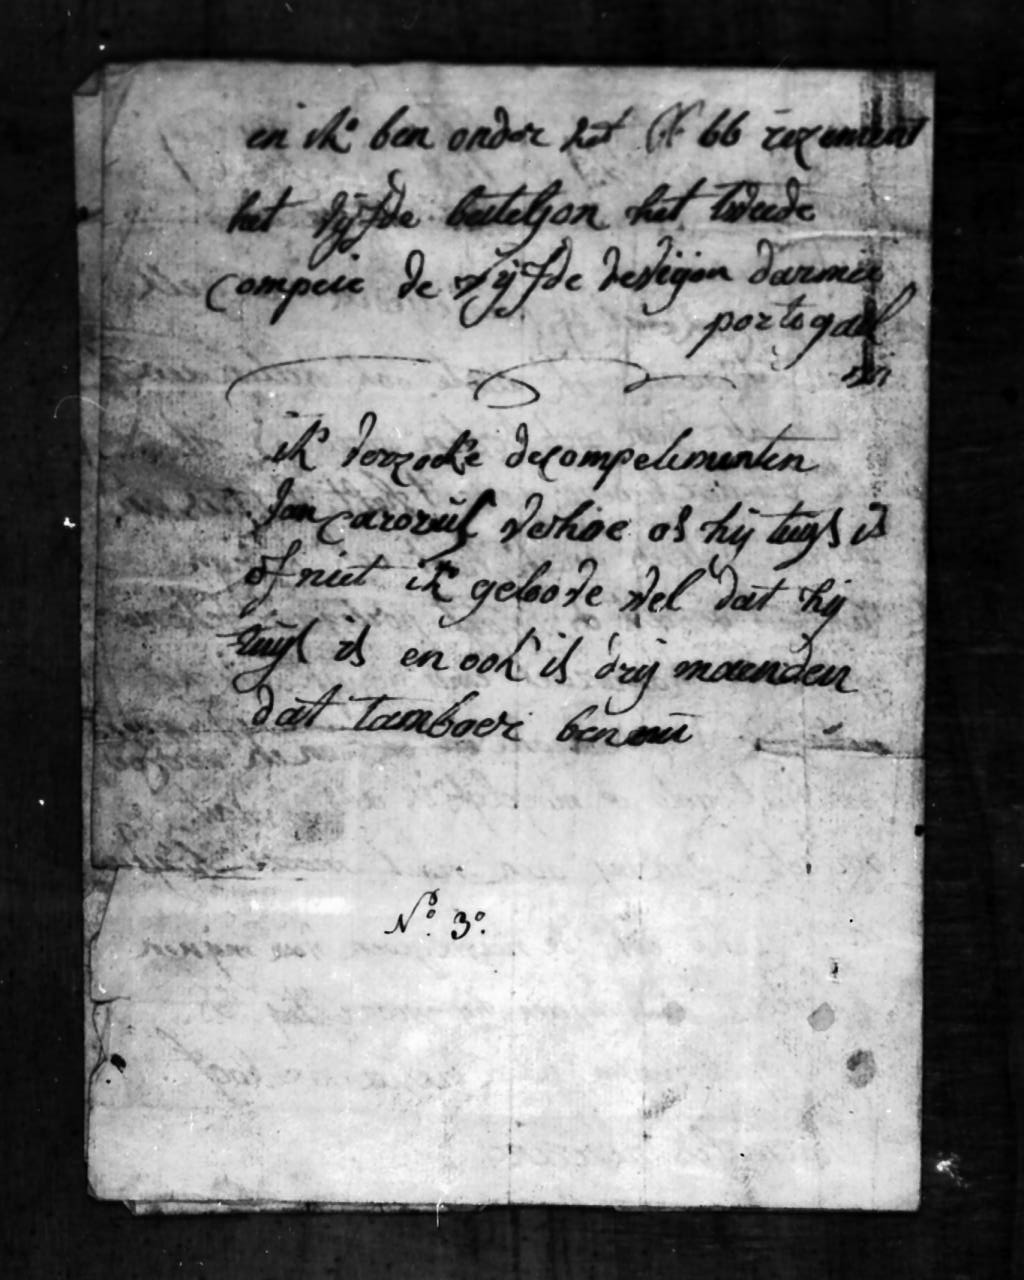 en ik ben onder het N 66 rezement
het vijfde bateljon het tweede
compeie de vijfde devizion darmee
portogael
ik verzoeke de compelimenten
Jan carorus verhoe of hij tuys is
of niet ik geloove wel dat hij
tuys is en ook is drij maenden
dat tamboer ben
N.º 3º